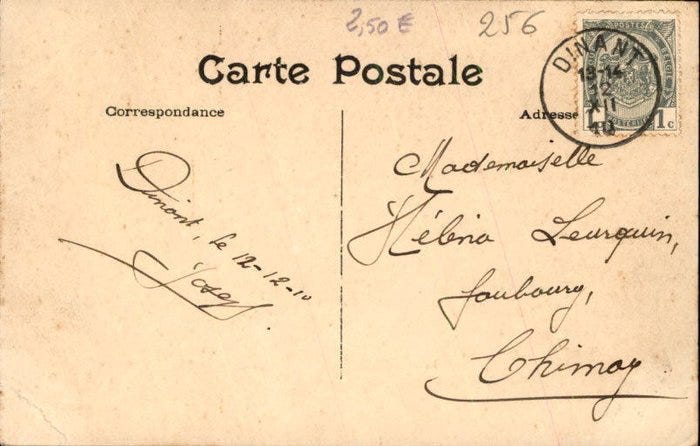 2,50 €
256
Carte Postale
Correspondance
Adresse
DINANT
13-14
12
XII
10
POSTES
1 1 c
Dinant, le 12-12-10
Josep
Mademoiselle
Héléna Leurquin,
faubourg,
Chimay